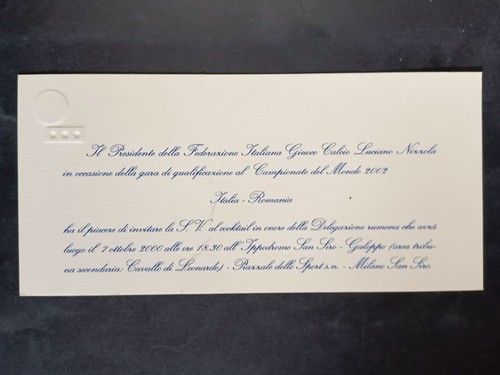 Il Presidente della Federazione Italiana Giuoco Calcio Luciano Nizzola
in occasione della gara di qualificazione al Campionato del Mondo 2002
Italia - Romania
ha il piacere di invitare la S.V. al cocktail in onore della Delegazione rumena che avrà
luogo il 7 ottobre 2000 alle ore 18.30 all'Ippodromo San Siro - Galoppo (area tribu-
na secondaria: Cavallo di Leonardo) - Piazzale dello Sport s.n. - Milano San Siro.